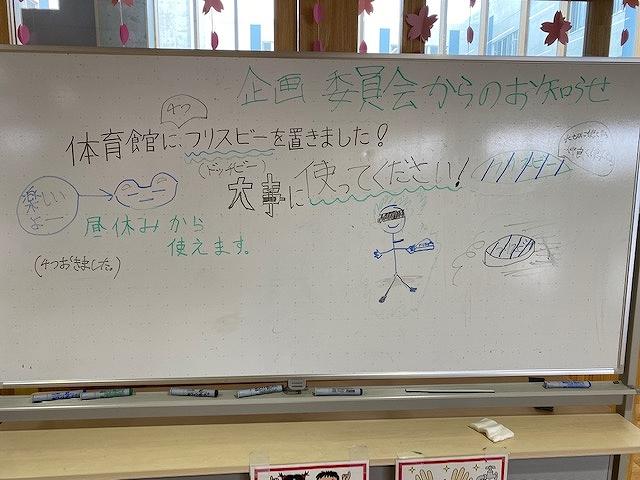 企画委員会からのお知らせ
4つ
体育館に、フリスビーを置きました!
(ドッヂビー)
大事に使ってください!
楽しい
よー
昼休みから
使えます。
(4つおきました。)